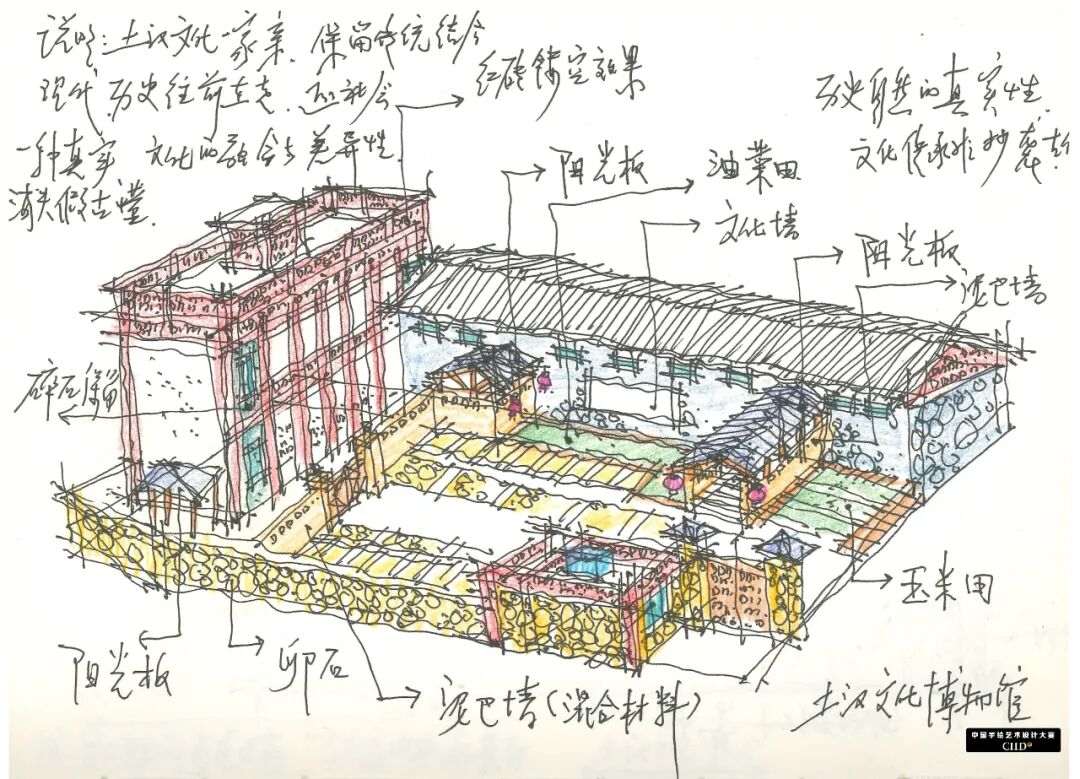 说明:土汉文化一家亲.保留传统结合
现代.历史往前走.还社会
一种真实.文化的融合与差异性.
消失假古董.
红砖镂空效果
历史自然的真实性.
文化传承非抄袭
阳光板
油菜田
文化墙
阳光板
泥巴墙
碎石保留
玉米田
阳光板
卵石
泥巴墙(混合材料)
土汉文化博物馆
中国手绘艺术设计大赛
CIID